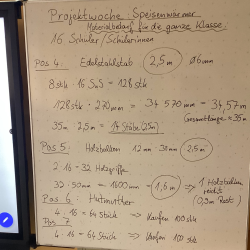 Projektwoche: Speisenwärmer
Materialbedarf für die ganze Klasse:
16 Schüler/Schülerinnen
Pos 4: Edelstahlstab 2,5m ø6mm
8stk · 16 SuS = 128stk
128stk · 270mm = 34 570mm = 34,57m
Gesamtlänge ≈ 35m
35m : 2,5m = 14 Stäbe (2,5m)
Pos 5: Holzbalken 12mm · 30mm 2,5m
2 · 16 = 32 Holzgriffe
32 · 50mm = 1600mm = 1,6m => 1 Holzbalken reicht
(0,9m Rest)
Pos. 6: Hutmutter
4 · 16 = 64 Stück => kaufen 100 stk
Pos 7:
4 · 16 = 64 Stück => kaufen 100 stk